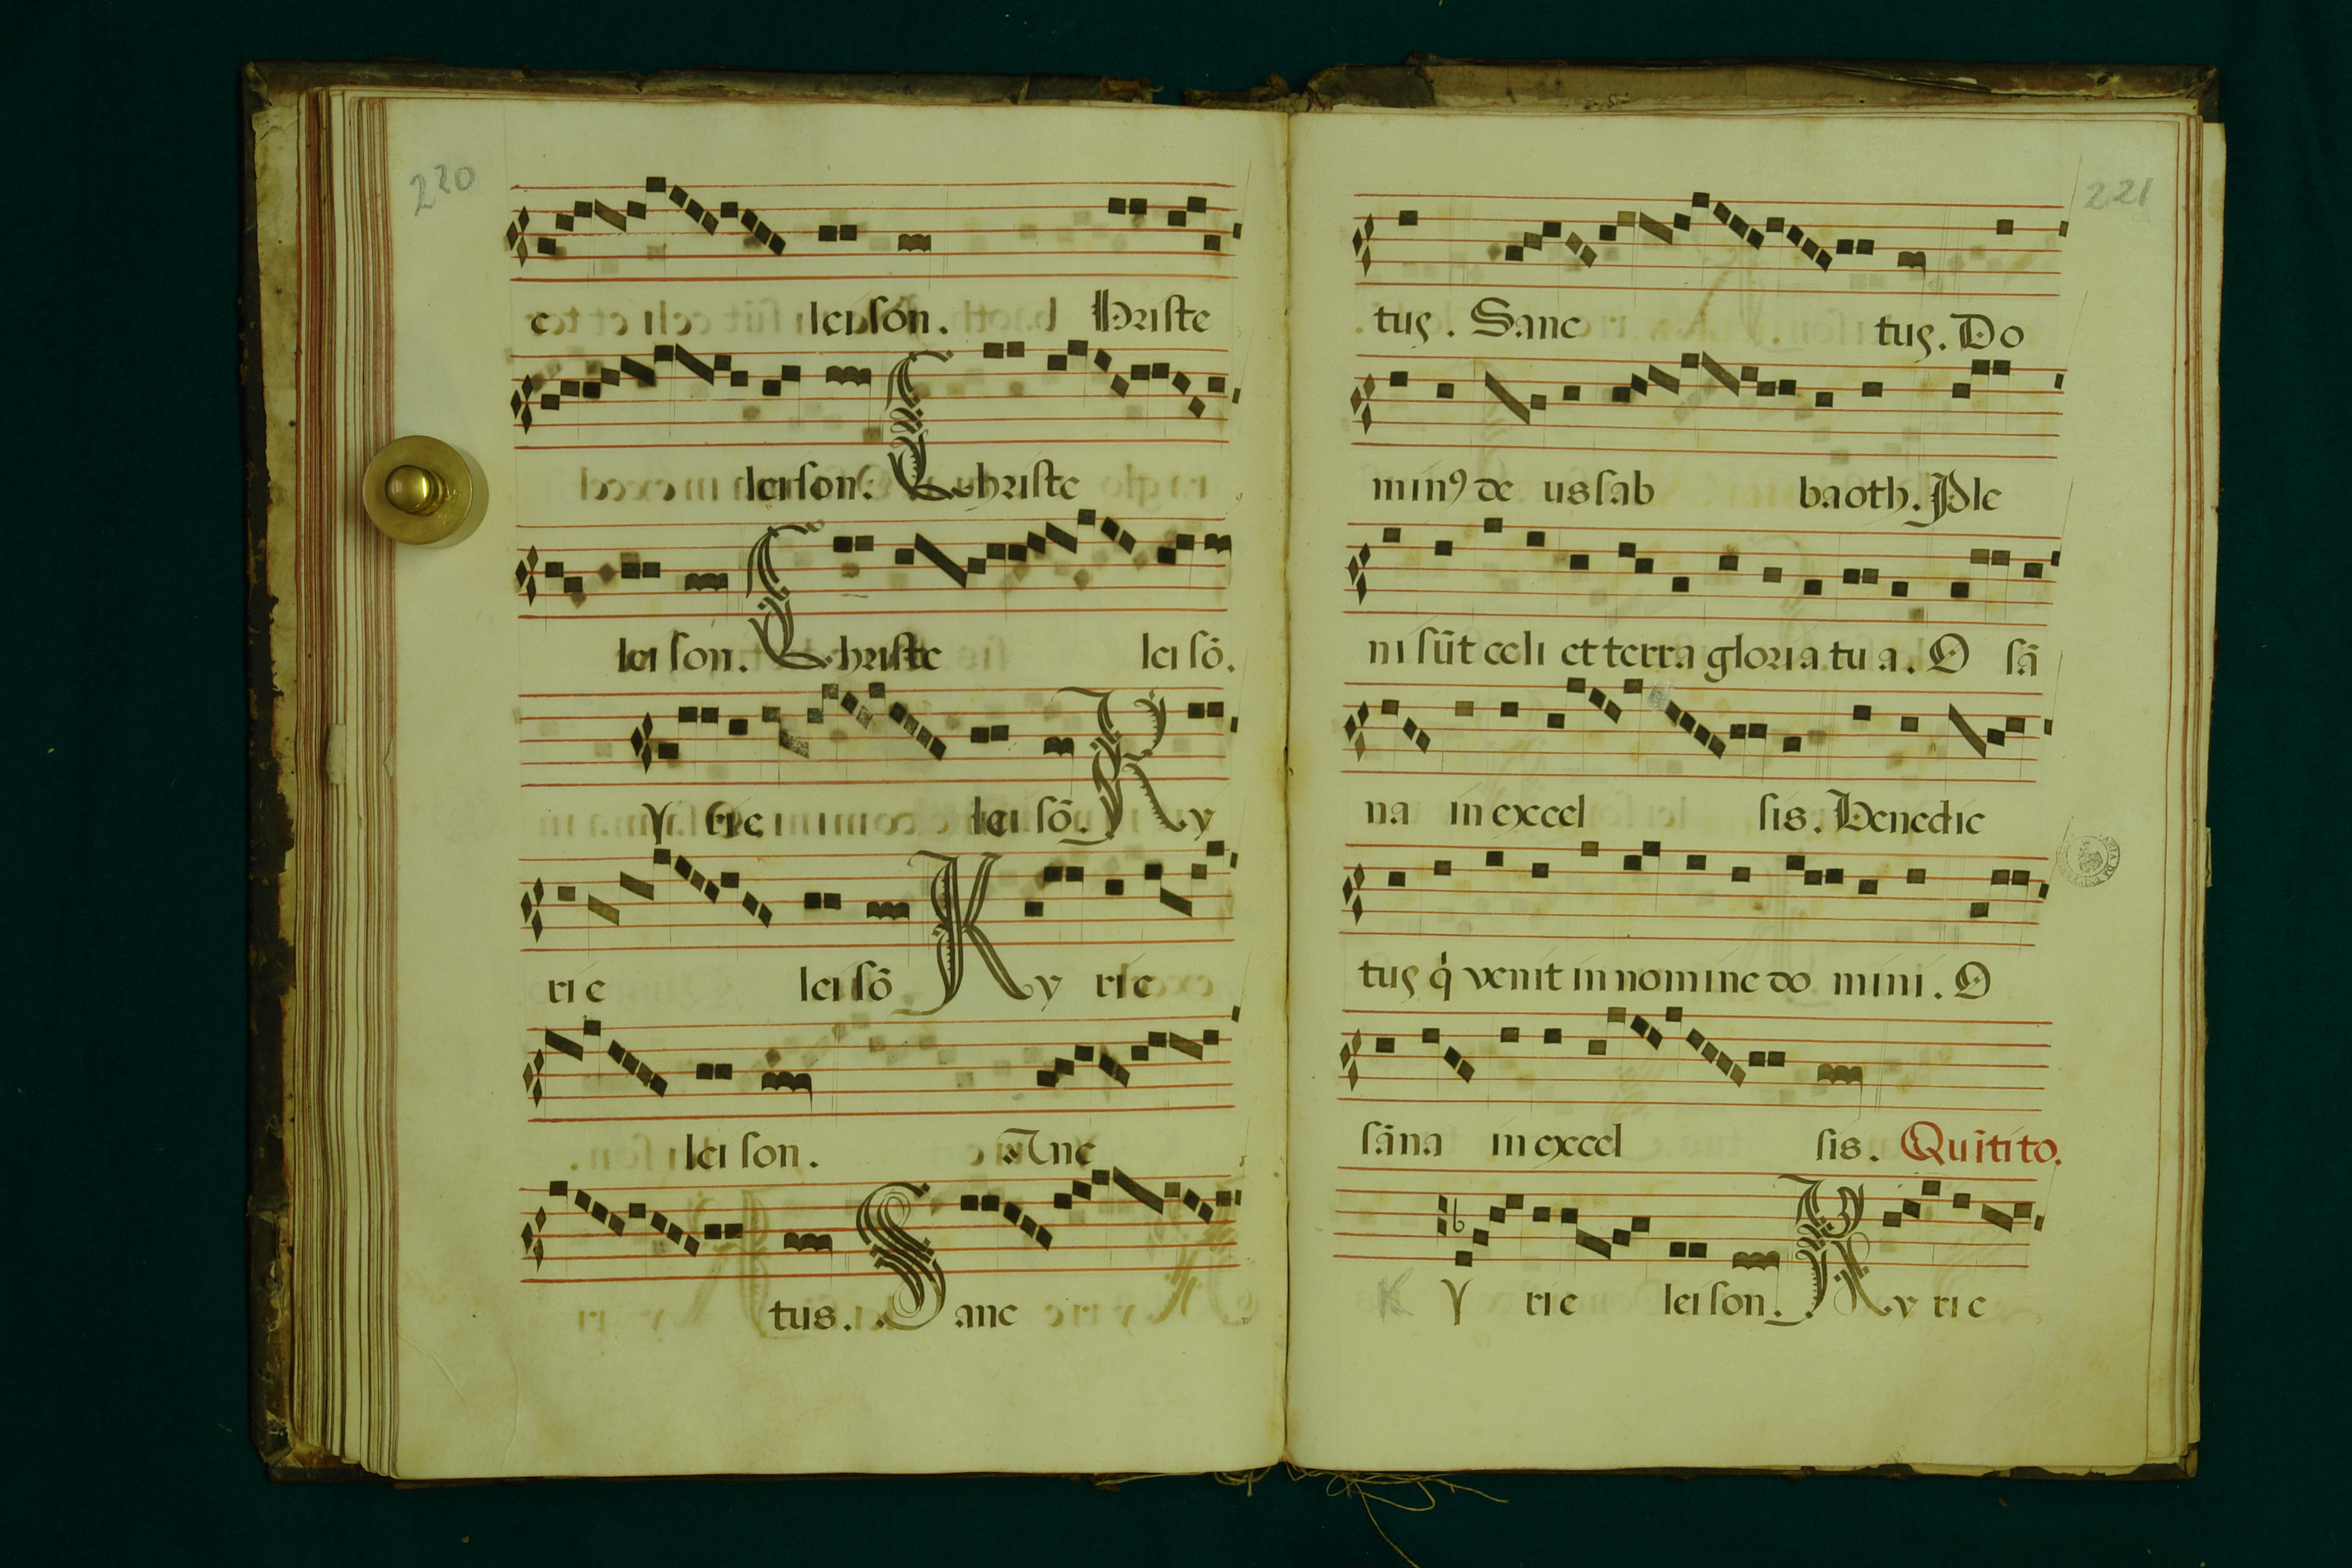 220
e leison. hriste
leison. Christe
leison. Christe leisō.
Y rie leisō. Ky
rie leisō Ky rie
leison. Anc
tus. Sanc
221
tus. Sanc tus. Do
minꝰ de us sab baoth. Ple
ni sūt celi et terra gloria tua. O sā
na in excel sis. Benedic
tus q̇ venit in nomine do mini. O
sāna in excel sis. Quītito.
K Y rie leison. Ky rie